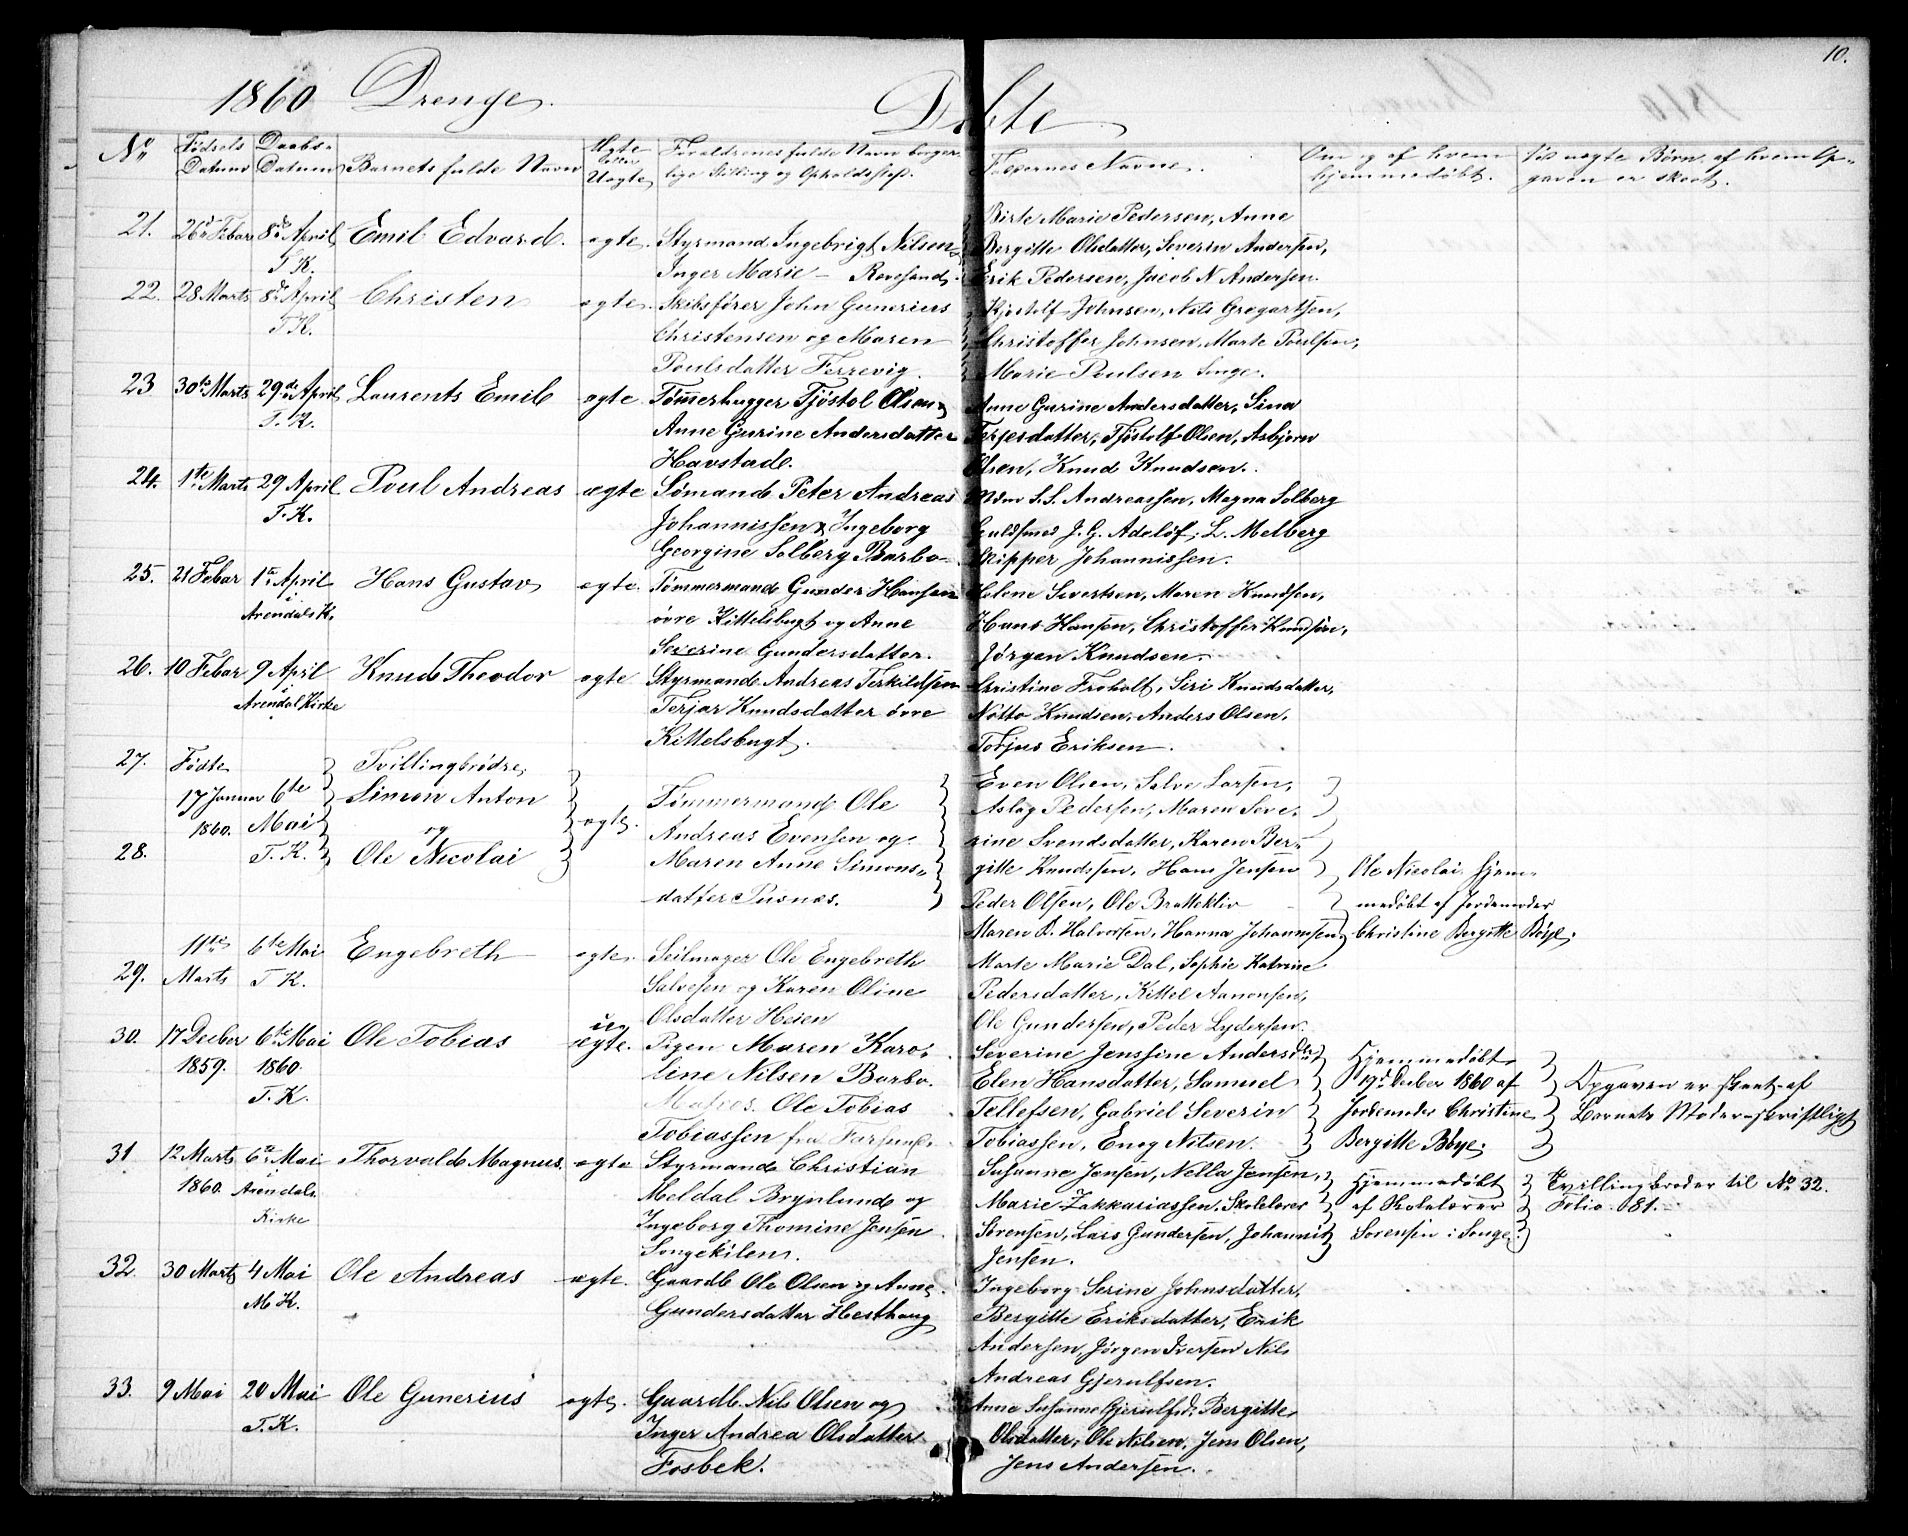 10.
1860 Drenge. Døbte
No Fødsels Datum Daabs- Datum Barnets fulde Navn Ægte eller Uægte Forældrenes fulde Navn borger-
lige Stilling og Opholdssted. Faddernes Navne. Om og af hvem hjemmedøbt. For uægte Børn, af hvem Op-
gaven er skeet.
21. 26de Febar 8de April Emil Edvard. ægte. Styrmand Ingebrigt Nilsen
T. K. Inger Marie – Revesand.
Birte Marie Pedersen, Anne
Bergitte Olsdatter, Severin Andersen,
Erik Pedersen, Jacob N Andersen
22. 28 Marts 8de April Christen ægte. Skibsfører John Gunerius
T K. Christensen og Maren
Poulsdatter Ferrevig.
Kjøstolf Johnsen, Nils Gregartsen,
Christoffer Johnsen, Marte Poulsen,
Marie Poulsen Songe.
23 30te Marts 29de April Laurents Emil ægte Tømmerhugger Tjøstol Olsen
T. K. Anne Gurine Andersdatter
Havstad.
Anne Gurine Andersdatter, Sina
Terjesdatter, Tjøstolf Olsen, Asbjørn
Olsen, Knud Knudsen.
24. 1te Marts 29 April Poul Andreas ægte Sømand Peter Andreas
T. K. Johannissen & Ingeborg
Georgine Solberg Barbo
Mdm S. S. Andreassen, Magna Solberg
Guldsmed J. G. Adeløf, L. Melberg
Skipper Johannissen.
25. 21 Febar 1te April Hans Gustav ægte. Tømmermand Gunder Hansen
i
Arendals K. øvre Kittelsbugt og Anne
Severine Gundersdatter.
Helene Sivertsen, Maren Knudsen,
Hans Hansen, Christoffer Knudsen,
Jørgen Knudsen.
26. 10 Febar 9 April Knud Theodor ægte Styrmand Andreas Terkildsen
i
Arendal Kirke Terjer Knudsdatter øvre
Kittelsbugt.
Christine Froholt, Siri Knudsdatter,
Notto Knudsen, Anders Olsen,
Torjus Eriksen.
27. Fødte Tvillingbrødre,
17 Januar 6te Simon Anton Tømmermand Ole
1860. Mai og ægte. Andreas Evensen og
28. T. K. Ole Nicolai Maren Anne Simons-
datter Pusnes.
Even Olsen, Salve Larsen,
Aslag Pedersen, Maren Seve-
rine Svendsdatter, Karen Ber-
gitte Knudsen, Hans Jensen Ole Nicolai hjem-
Peder Olsen, Ole Bratteklev medøbt af Jordemoder
Maren B. Halvorsen, Hanna Johannsen, Christine Bergitte Bøye.
29. 11te 6te Mai Engebreth ægte. Seilmager Ole Engebreth
Marts T K. Salvesen og Karen Oline
Olsdatter Heien
Marte Marie Dal, Sophie Katrine
Pedersdatter, Kittel Aanonsen,
Ole Gundersen, Peder Lydersen.
30. 17 Decber 6te Mai Ole Tobias uægte. Pigen Maren Karo-
1859. 1860. line Nilsen Barbo.
T. K. Matros Ole Tobias
Tobiassen fra Farsund.
Severine Jenssine Andersdtr Hjemmedøbt
Elen Hansdatter, Samuel 17de Decber 1860 af Opgaven er skeet af
Tellefsen, Gabriel Severin Jordemoder Christine Barnets Moder skriftligt
Tobiassen, Enog Nilsen. Bergitte Bøye.
31. 12 Marts 6te Mai Thorvald Magnus. ægte Styrmand Christian
1860. i Arendals Meldal Brynlund og
Kirke Ingeborg Thomine Jensen
Songekilen.
Susanne Jensen, Nella Jensen, Hjemmedøbt Tvillingbroder til No 32.
Marie Zakkariassen, Skolelærer af Skolelærer Folio 681.
Sørensen, Lars Gundersen, Johannis Sørensen i Songe.
Jensen.
32. 30 Marts 4 Mai Ole Andreas ægte. Gaardb Ole Olsen og Anne
M K. Gundersdatter Hesthaug
Ingeborg Serine Johnsdatter,
Bergitte Eriksdatter, Erik
Andersen, Jørgen Iversen Nils
Andreas Gjerulfsen.
33. 9 Mai 20 Mai Ole Gunerius ægte. Gaardb. Nils Olsen og
T. K. Inger Andrea Olsdatter
Fosbek.
Anne Susanne Gjerulfsd. Bergitte
Olsdatter, Ole Nilsen, Jens Olsen,
Jens Andersen.